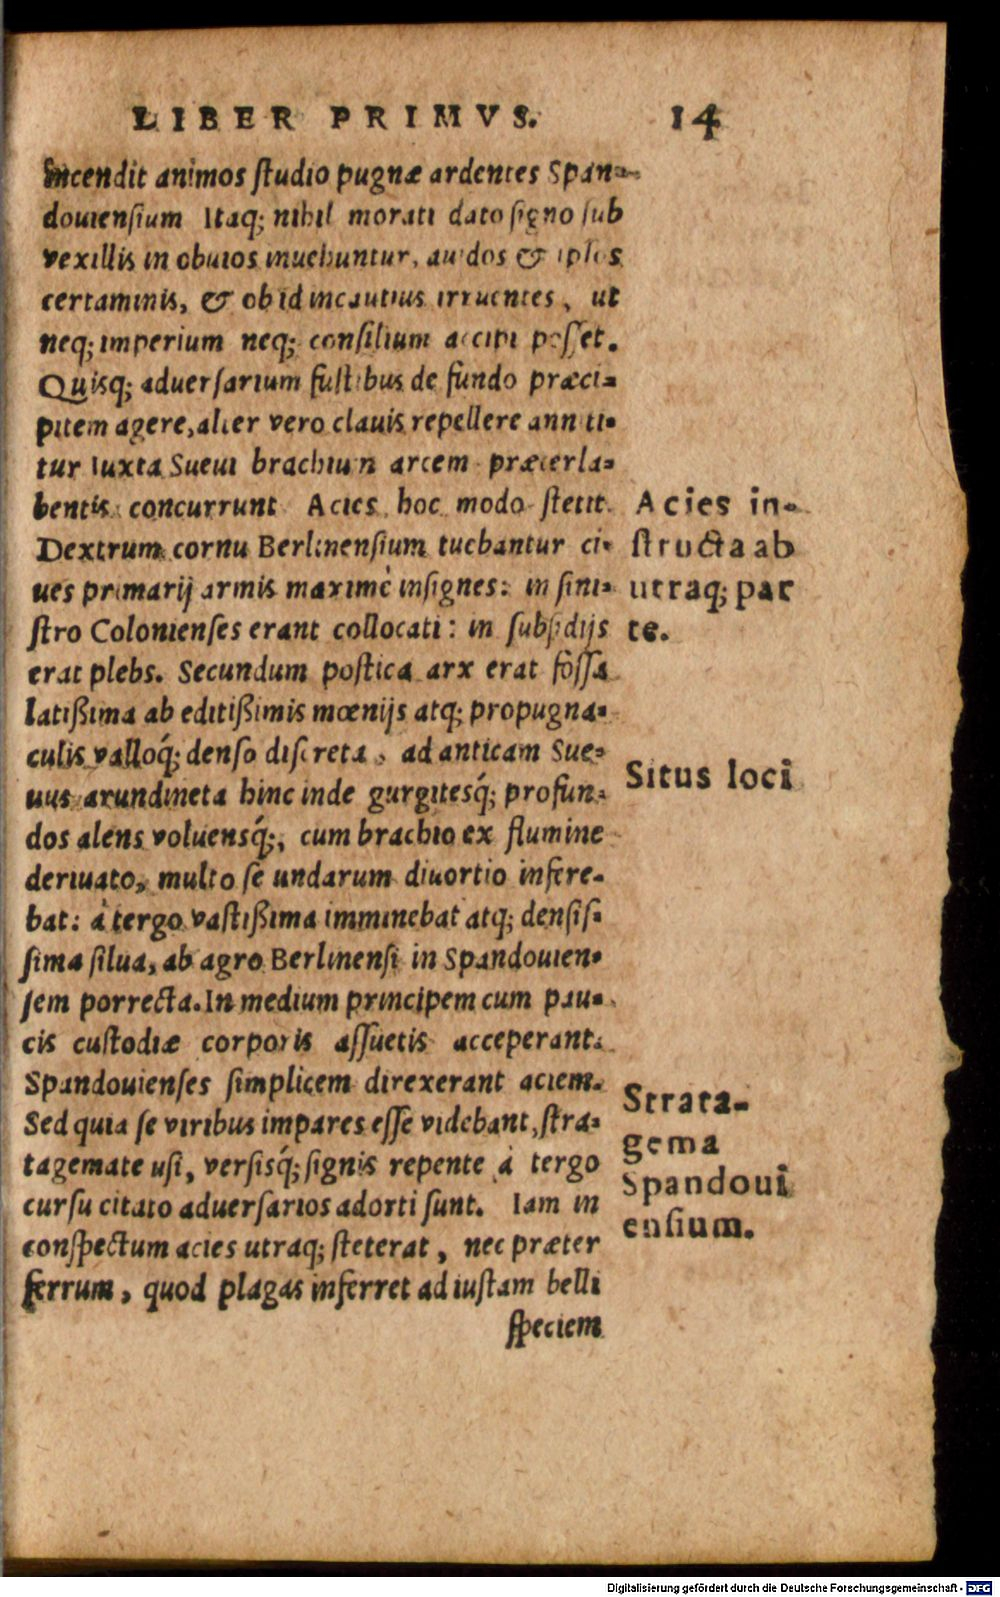 LIBER PRIMVS. 14
Incendit animos ſtudio pugnæ ardentes Span-
douienſium Itaq; nihil morati dato ſigno ſub
vexillis in obuios inuehuntur, auidos & ipſos
certaminis, & ob id incautius irruentes, ut
neq; imperium neq; conſilium accipi poſſet.
Quisq; aduerſarium fuſtibus de fundo præci-
pitem agere, alter vero clauis repellere annti-
tur Iuxta Sueui brachium arcem præterla-
bentis concurrunt Acies hoc modo ſtetit.
Acies in-
Dextrum cornu Berlinenſium tuebantur ci-
ſtructa ab
ues primarij armis maximè inſignes: in ſini-
utraq; par
ſtro Colonienſes erant collocati: in ſubſidijs
te.
erat plebs. Secundum poſtica arx erat foſſa
latißima ab editißimis mœnijs atq; propugna-
culis valloq́; denſo diſcreta, ad anticam Sue-
Situs loci
uus arundineta hinc inde gurgitesq́; profun-
dos alens voluensq́;, cum brachio ex flumine
deriuato, multo ſe undarum diuortio infere-
bat: à tergo vaſtißima imminebat atq; denſiſ-
ſima ſilua, ab agro Berlinenſi in Spandouien-
ſem porrecta. In medium principem cum pau-
cis cuſtodiæ corporis aſſuetis acceperant.
Spandouienſes ſimplicem direxerant aciem.
Strata-
Sed quia ſe viribus impares eſſe videbant, ſtra-
gema
tagemate uſi, verſisq́; ſignis repente à tergo
Spandoui
curſu citato aduerſarios adorti ſunt. Iam in
enſium.
conſpectum acies utraq; ſteterat, nec præter
ferrum, quod plagas inferret ad iuſtam belli
ſpeciem
Digitalisierung gefördert durch die Deutsche Forschungsgemeinschaft - DFG